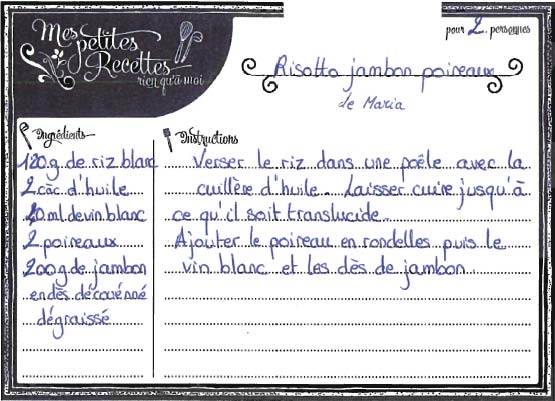 Mes petites Recettes
rien qu'à moi
pour 2 personnes
Risotto jambon poireaux
de Maria
Ingrédients
120g de riz blanc
2 càc d'huile
20 ml de vin blanc
2 poireaux
200g de jambon
en dès découénné
dégraissé
Instructions
Verser le riz dans une poële avec la
cuillère d'huile. Laisser cuire jusqu'à
ce qu'il soit translucide.
Ajouter le poireau en rondelles puis le
vin blanc et les dès de jambon.